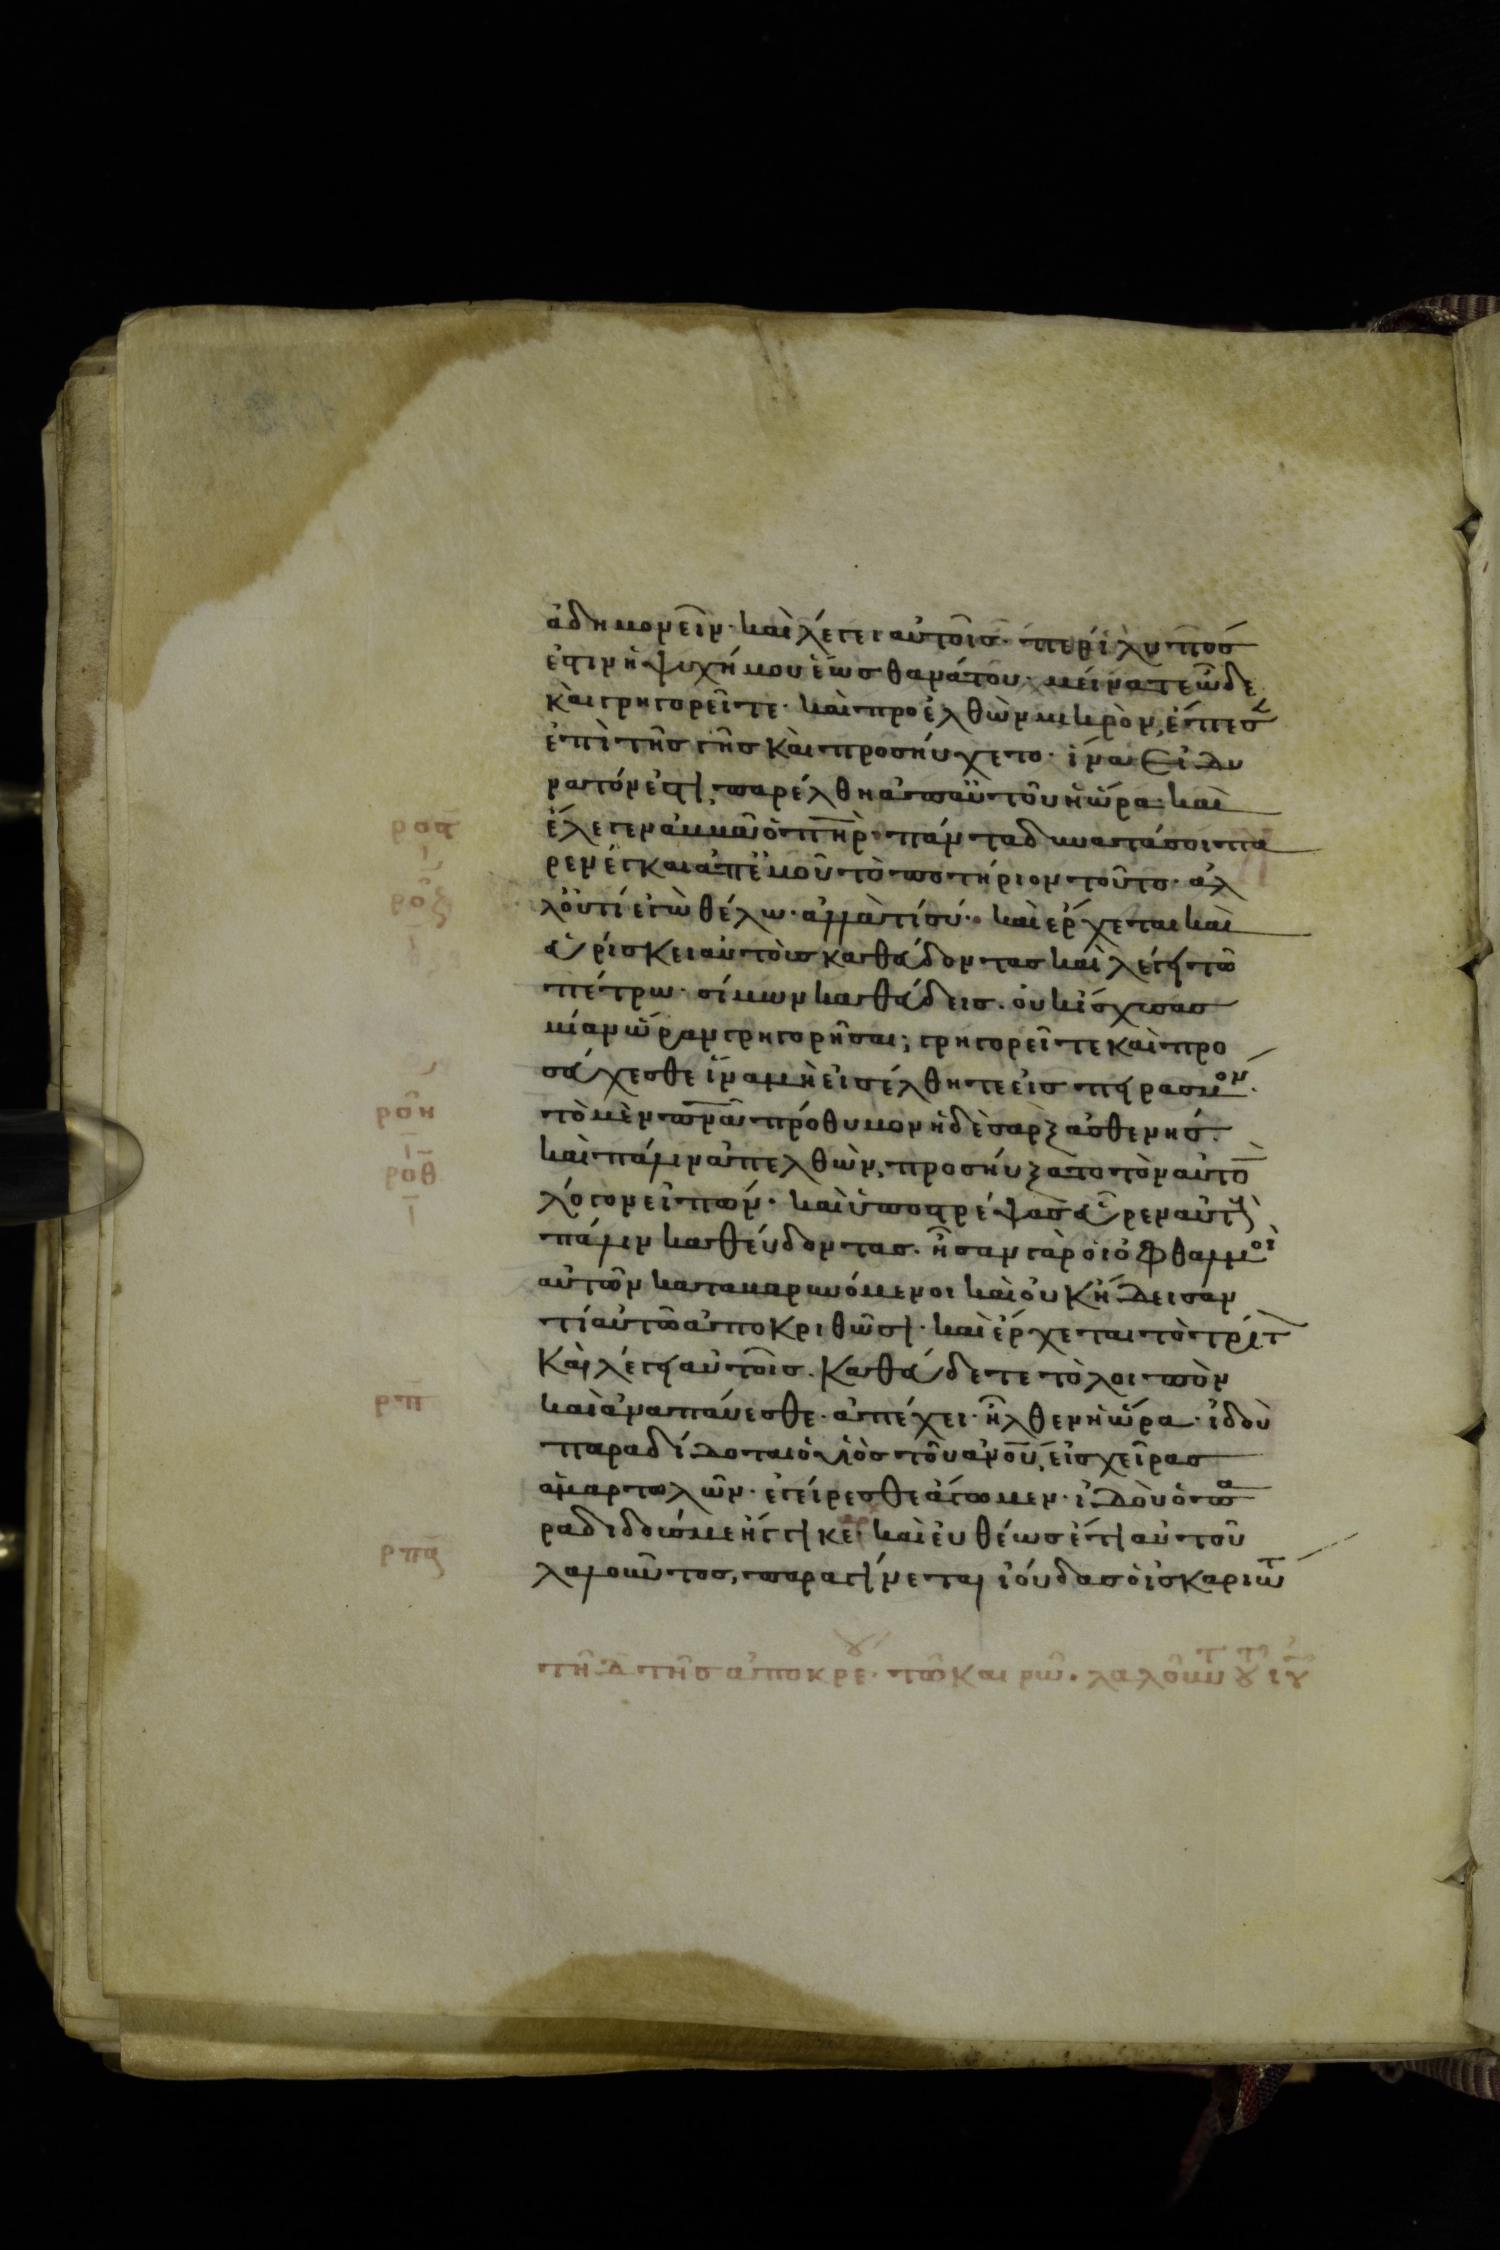 ἀδημονεῖν· καὶ λέγει αὐτοῖς· περίλυπός
ἐστιν ἡ ψυχή μου ἕως θανάτου· μείνατε ὧδε
καὶ γρηγορεῖτε· καὶ προελθὼν μικρὸν, ἔπεσεν
ἐπὶ τῆς γῆς καὶ προσηύχετο· ἵνα εἰ δυ
νατόν ἐστι, παρέλθη ἀπ αὐτοῦ ἡ ὥρα· καὶ
ἔλεγεν ἀββᾶ ὁ πηρ· πάντα δυνατά σοι πα
ρένεγκαι ἀπ ἐμοῦ τὸ ποτήριον τοῦτο· ἀλ
λ οὐ τί ἐγὼ θέλω· ἀλλὰ τί σύ· καὶ ἔρχεται καὶ
εὑρίσκει αὐτοὺς καθεύδοντας καὶ λέγει τῶ
πέτρω· σίμων καθεύδεις. οὐκ ἴσχυσας
μίαν ὥραν γρηγορῆσαι; γρηγορεῖτε καὶ προ
σεύχεσθε ἵνα μὴ εἰσέλθητε εἰς πειρασμόν.
τὸ μὲν πνα πρόθυμον ἡ δὲ σὰρξ ἀσθενής.
καὶ πάλιν ἀπελθὼν, προσηύξατο τὸν αὐτὸ
λόγον εἰπών· καὶ ὑποστρέψας εὗρεν αὐτοὺς
πάλιν καθεύδοντας. ἦσαν γὰρ οἱ ὀφθαλμοὶ
αὐτῶν καταβαρυνόμενοι καὶ οὐκ ἤδεισαν
τί αὐτῶ ἀποκριθῶσι· καὶ ἔρχεται τὸ τρίτ
καὶ λέγει αὐτοῖς. καθεύδετε τὸ λοιπὸν
καὶ ἀναπαύεσθε· ἀπέχει· ἦλθεν ἡ ὥρα· ἰδοὺ
παραδίδοται ὁ υἱὸς τοῦ ἀνου, εἰς χεῖρας
ἁμαρτωλῶν· ἐγείρεσθε ἄγωμεν· ἰδοὺ ὁ πα
ραδιδούς με ἤγγικε· καὶ εὐθέως ἔτι αὐτοῦ
λαλοῦντος, παραγίνεται ἰούδας ὁ ἰσκαριώτ
τῆ δ τῆς ἀποκρε· τῶ καιρῶ. λαλοῦντ τ ιυ
ροη
ροθ
ρπ
ρπα